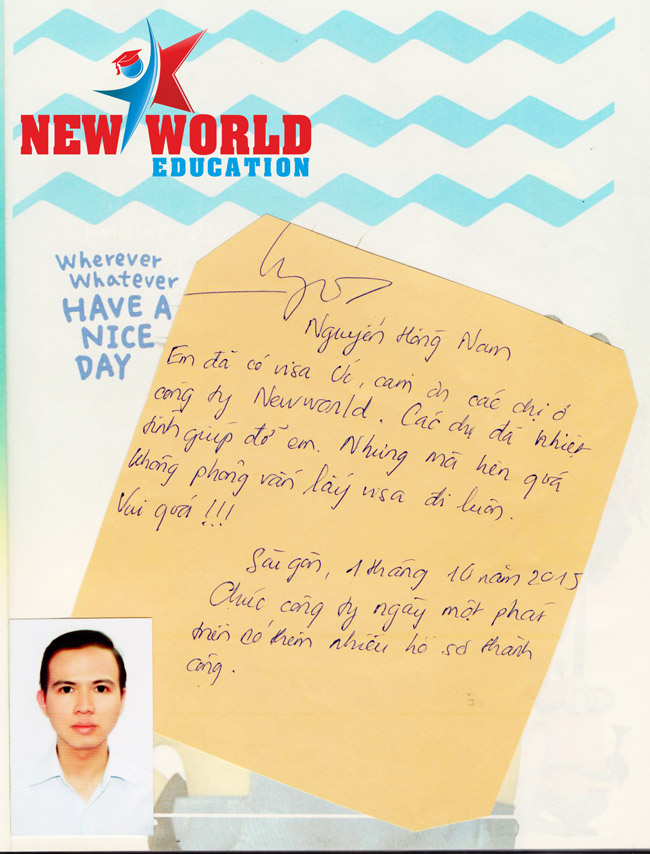 NEW WORLD
EDUCATION
Wherever
Whatever
HAVE A
NICE
DAY
Nguyễn Hồng Nam
Em đã có visa Úc, cám ơn các chị ở
công ty Newworld. Các chị đã nhiệt
tình giúp đỡ em. Nhưng mà hên quá
không phỏng vấn lấy visa đi luôn.
Vui quá !!!
Sài gòn, 1 tháng 10 năm 2015
Chúc công ty ngày một phát
triển có thêm nhiều hồ sơ thành
công.